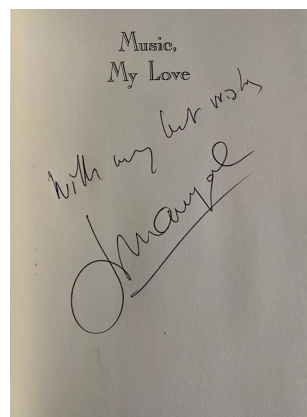 Music,
My Love
With my best wishes